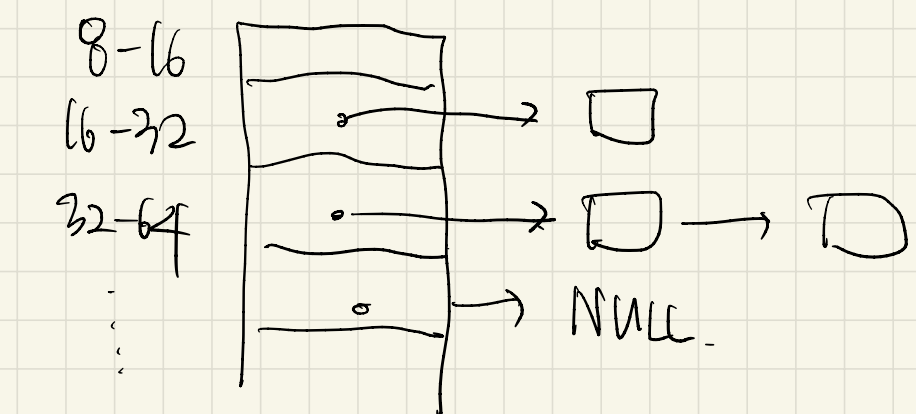 8-16
16-32
32-64
NULL.